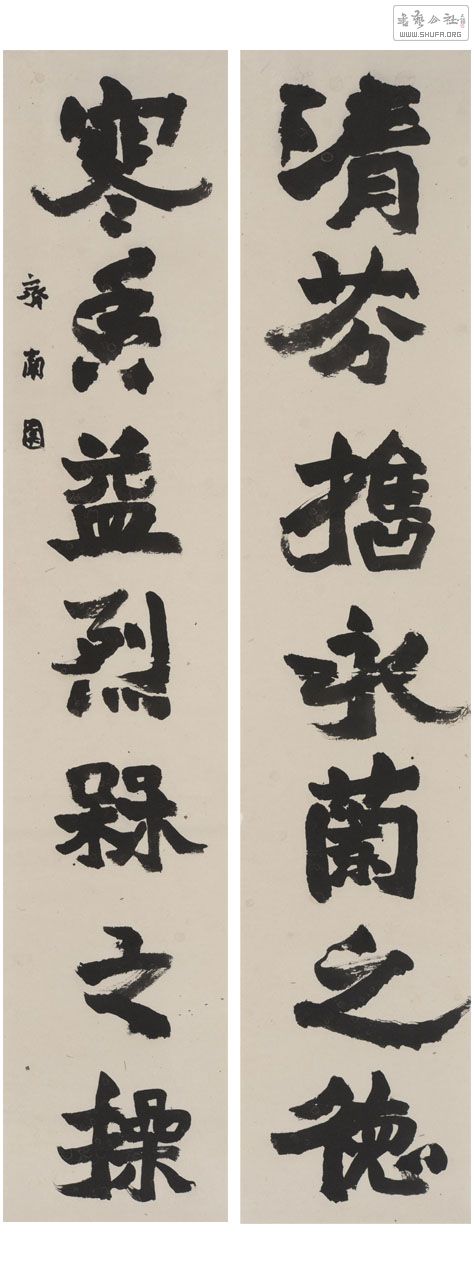 書藝公社
WWW.SHUFA.ORG
清芬永蘭之德
寒香益烈槑之操
齊南